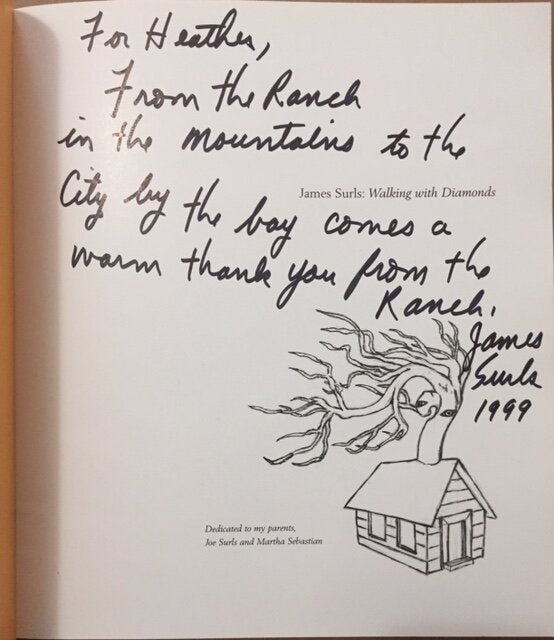 For Heather,
From the Ranch
in the mountains to the
James Surls: Walking with Diamonds
City by the bay comes a
warm thank you from the
Ranch.
James
Surls
1999
Dedicated to my parents,
Joe Surls and Martha Sebastian